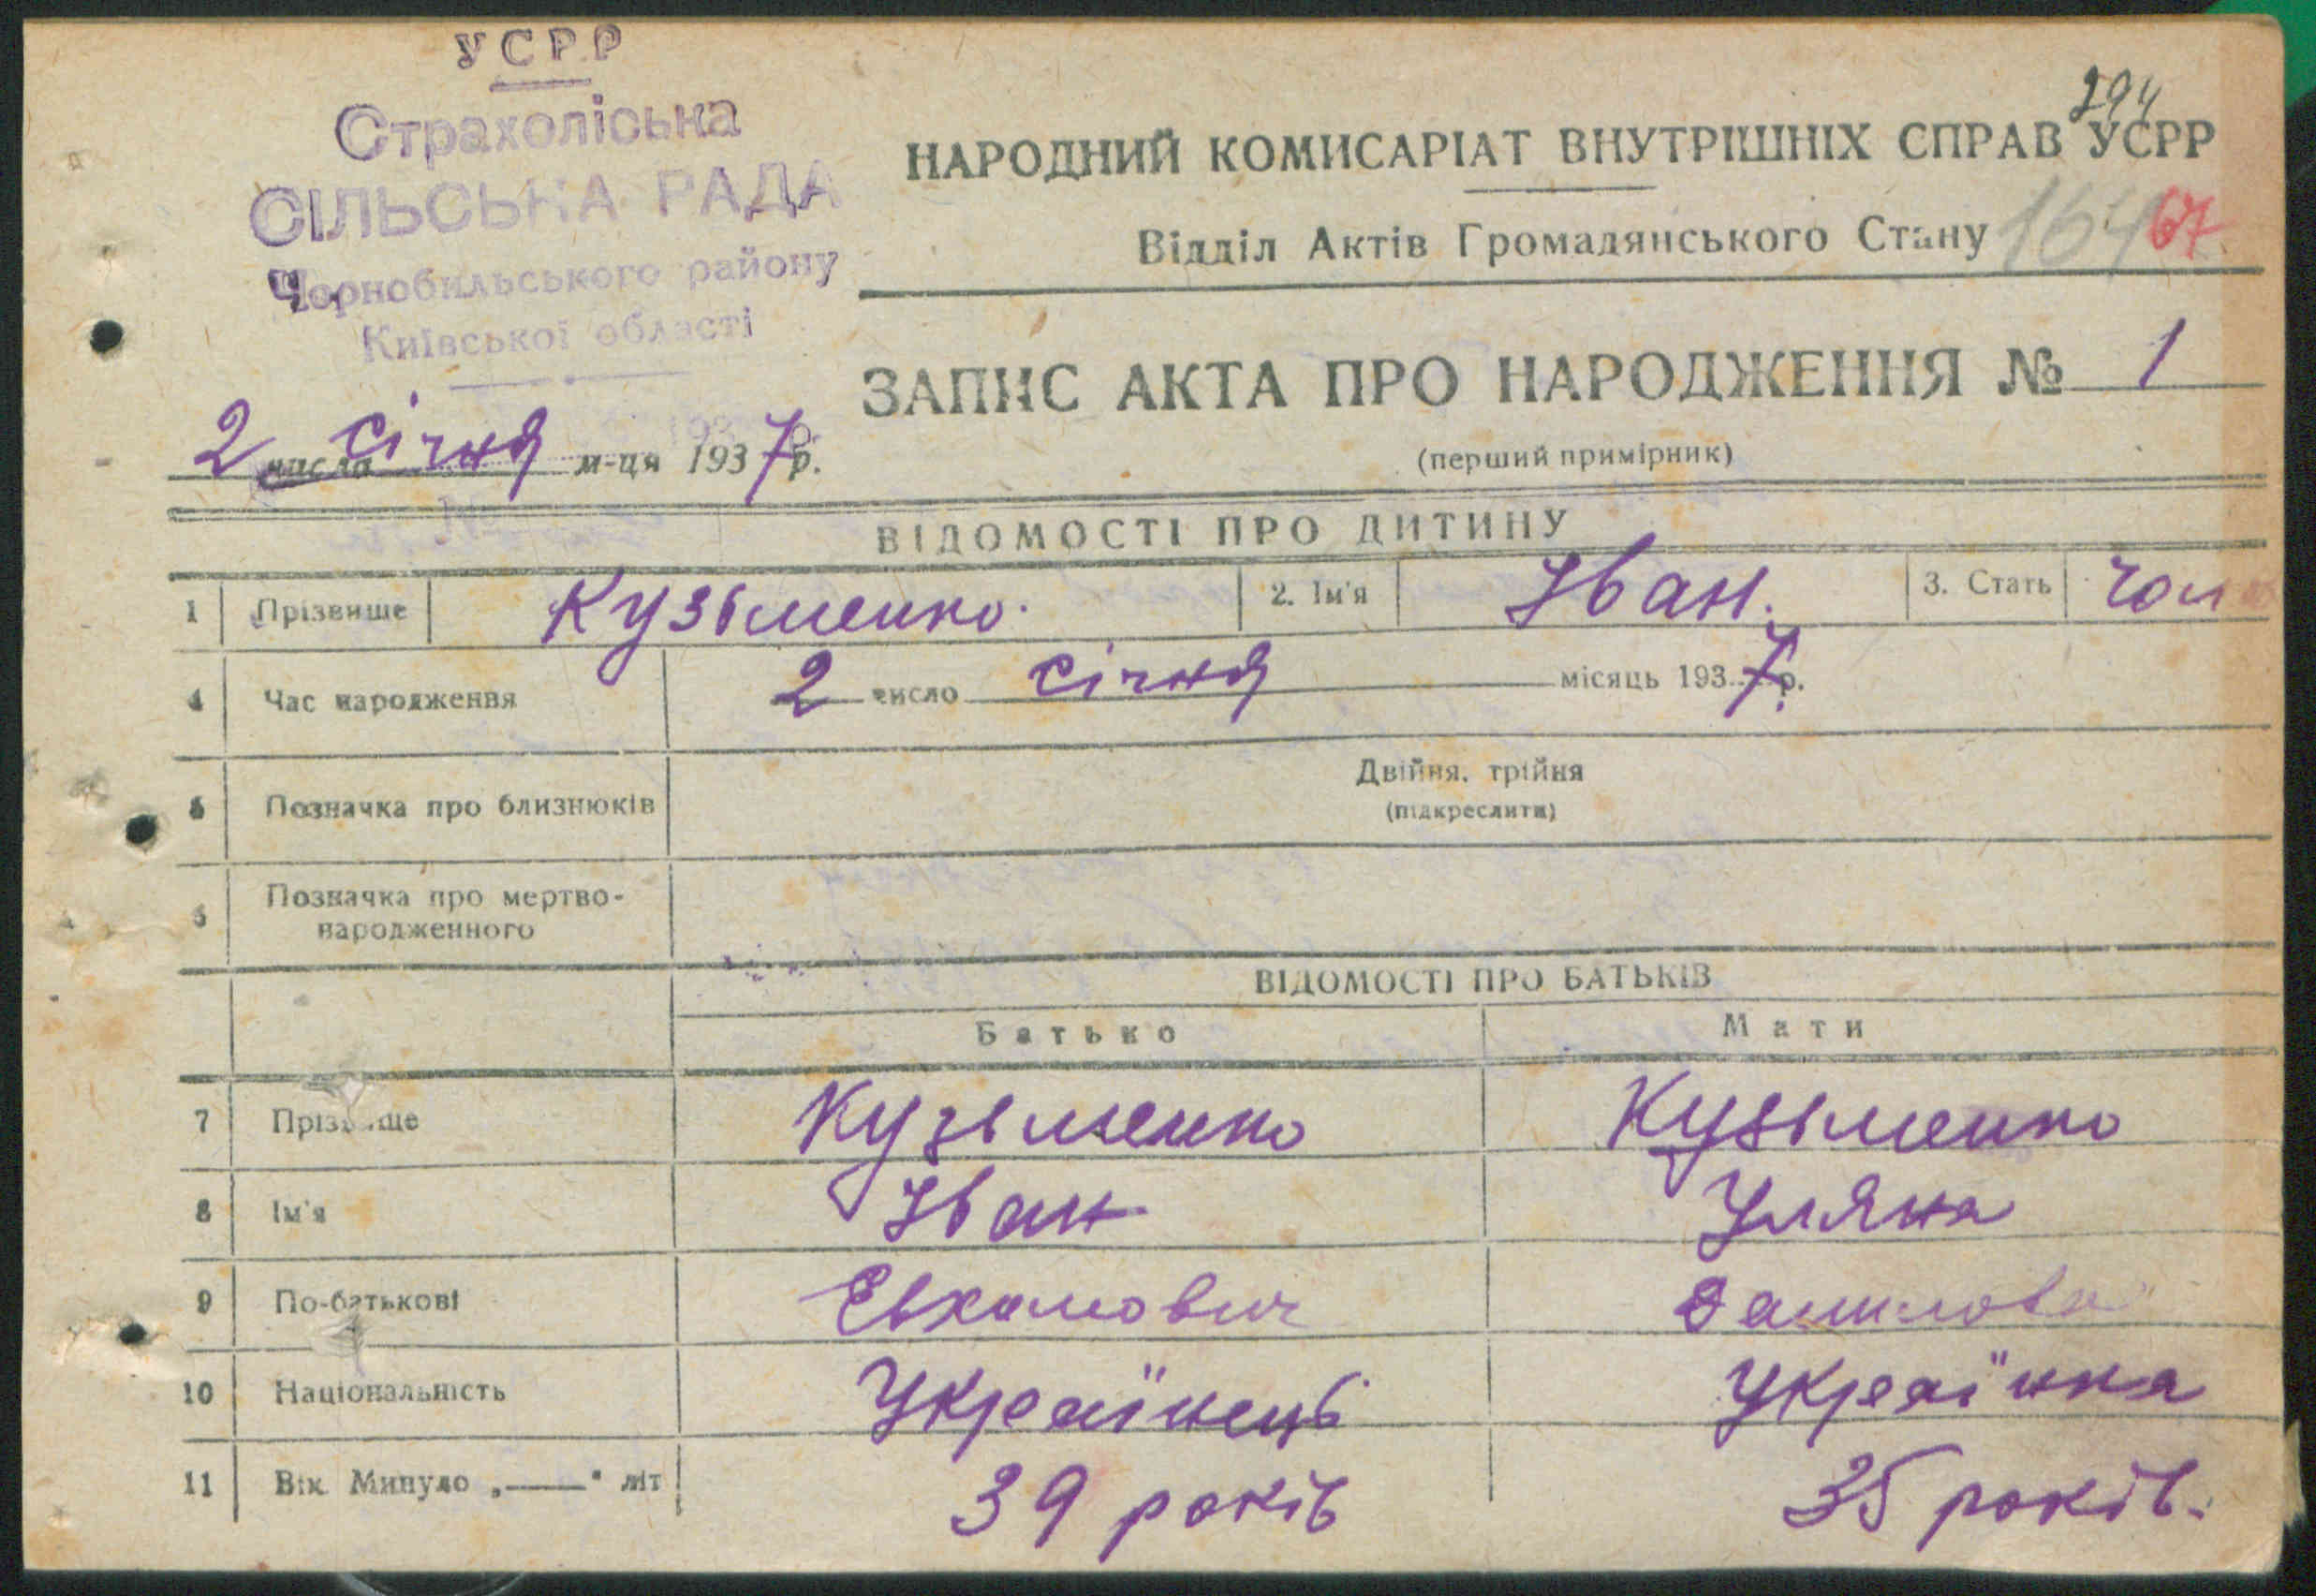 УСРР
Страхоліська
СІЛЬСЬКА РАДА
Чорнобильського району
Київської області
294
НАРОДНИЙ КОМИСАРІАТ ВНУТРІШНІХ СПРАВ УСРР
Відділ Актів Громадянського Стану 164 67
ЗАПИС АКТА ПРО НАРОДЖЕННЯ № 1
2 числа січня м-ця 1937 р.
(перший примірник)
ВІДОМОСТІ ПРО ДИТИНУ
1 Прізвище Кузьменко. 2. Ім'я Іван. 3. Стать чол
4 Час народження 2 число січня місяць 1937 р.
5 Позначка про близнюків Двійня, трійня
(підкреслити)
6 Позначка про мертво-
народженного
ВІДОМОСТІ ПРО БАТЬКІВ
Батько Мати
7 Прізвище Кузьменко Кузьменко
8 Ім'я Іван Уляна
9 По-батькові Данилова
10 Національність Українець Українка
11 Вік Минуло „——“ літ 39 років 35 років.